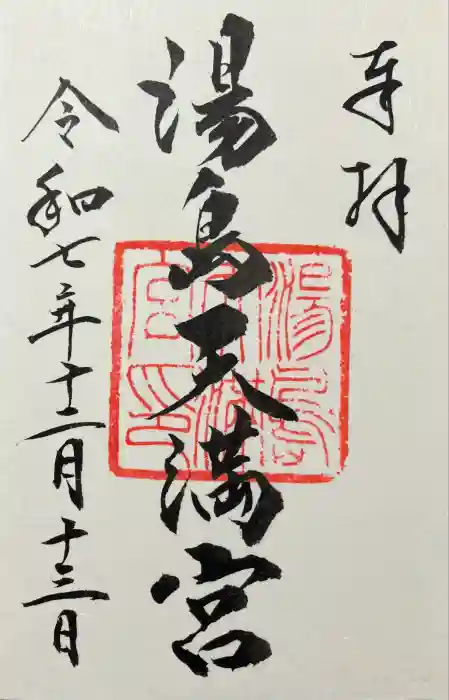 奉拝
湯島天満宮
湯島
天満
宮印
令和七年十二月十三日